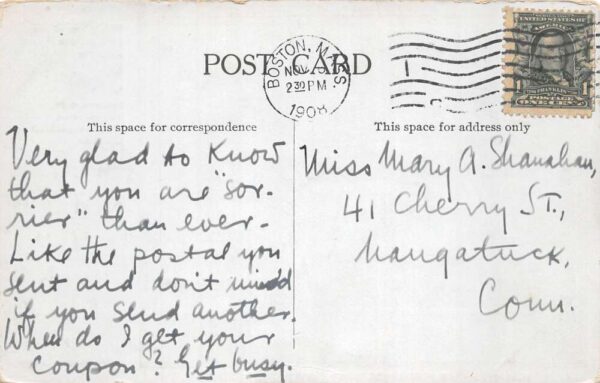 POST CARD
BOSTON, MASS.
NOV
2 30 PM
1908
1
UNITED STATES OF
AMERICA
1 1
POSTAGE
ONE CENT
This space for correspondence
This space for address only
Very glad to know
that you are "sor-
rier" than ever.
Like the postal you
sent and don't mind
if you send another.
When do I get your
coupon? Get busy.
Miss Mary A. Shanahan,
41 Cherry St.,
Naugatuck,
Conn.